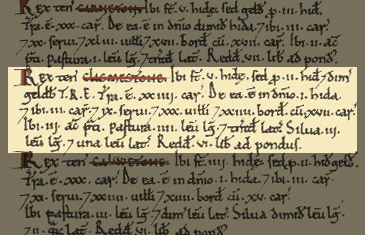 Rex ten' Ibi st' v. hidę. sed geld p. iii. hid'.
Tra. ē. xxx. car'. De ea. ē in dnio dimid hida. 7 ibi. iii. car'.
7 xx. serui. 7 xli. uilli 7 xvii. bord' cū. xvii. car'. Ibi. ii. ac'
pti. pastura. i. leu lg'. 7 tntd' lat'. Redd'. vii. lib' ad pond'.
Rex ten' Ibi st'. v. hidę. sed. p. ii. hid'. 7 dim'
geldb' T.R.E. Tra. ē. xxx. iiii. car'. De ea. ē in dnio. i. hida.
7 ibi. iii. car'. 7 ix. serui. 7 xxx. uilli 7 xxiiii. bord' cū. xvii. car'.
Ibi. iii. ac' pti. pastura. iii. leu lg'. 7 tntd' lat'. Silua. iii.
leu lg'. 7 una leu lat'. Redd'. vi. lib' ad pondus.
Rex ten' Ibi st'. iii. hidę. sed. p. ii. hid' geld'.
Tra. ē. xxx. car'. De ea. ē in dnio dimid' hida. 7 ibi. iii. car'.
7 xx. serui. 7 xxiiii. uilli 7 xiii. bord' cū. xv. car'.
Ibi pastura. iii. leu lg'. 7 dim' leu lat'. Silua dimid' leu lg'.
lat'. Redd'. vii. lib' ad pond'.